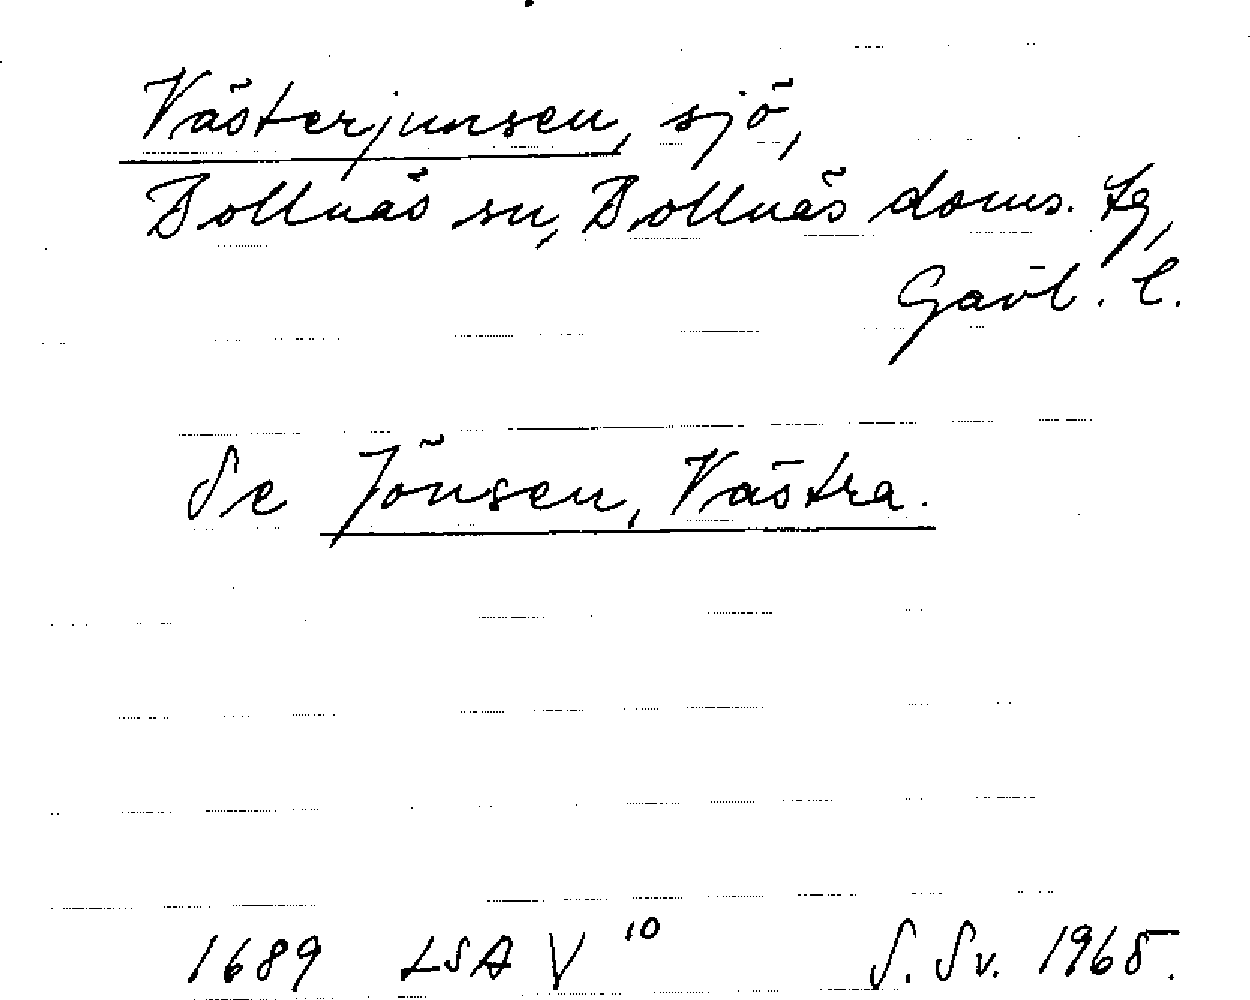 Västerjunsen, sjö,
Bollnäs sn, Bollnäs doms. tg,
Gävl. l.
Se Jönsen, Västra.
1689 LSA V 10 S. Sv. 1965.